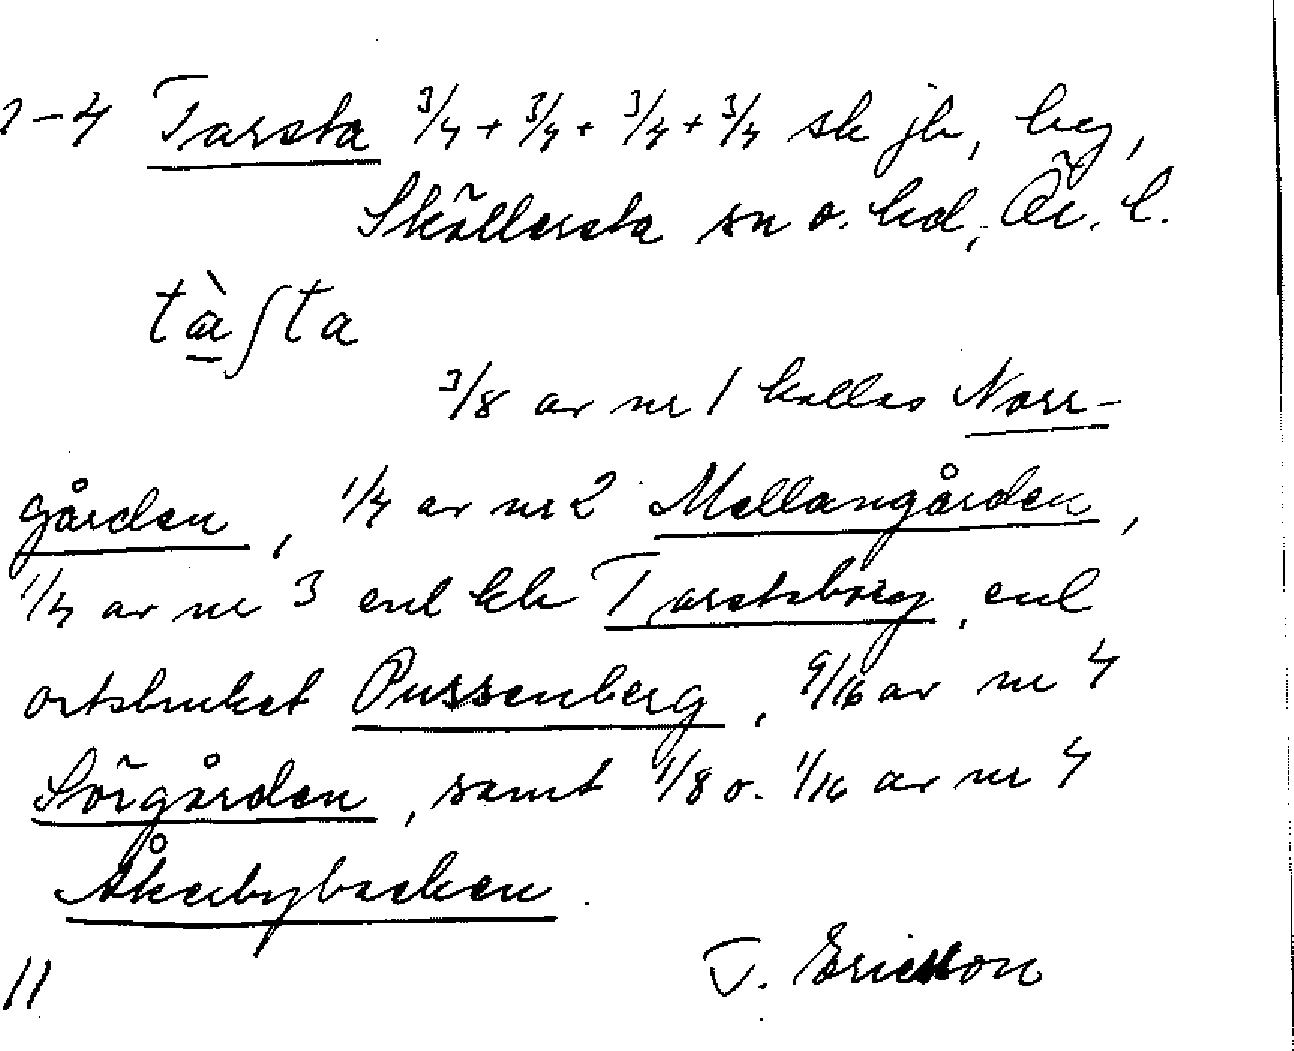 1-4 Tarsta 3/4 + 3/4 + 3/4 + 3/4 sk jb, beg,
Sköllersta sn o. hd, Ör. l.
tàʃta
3/8 av nr 1 kallas Norr-
gården, 1/4 av nr 2 Mellangården,
1/4 av nr 3 enl kb Tarstaborg, enl
ortsbruket Pussenberg, 9/16 av nr 4
Sörgården, samt 1/8 o. 1/16 av nr 4
Åkerbybacken.
11 T. Ericsson